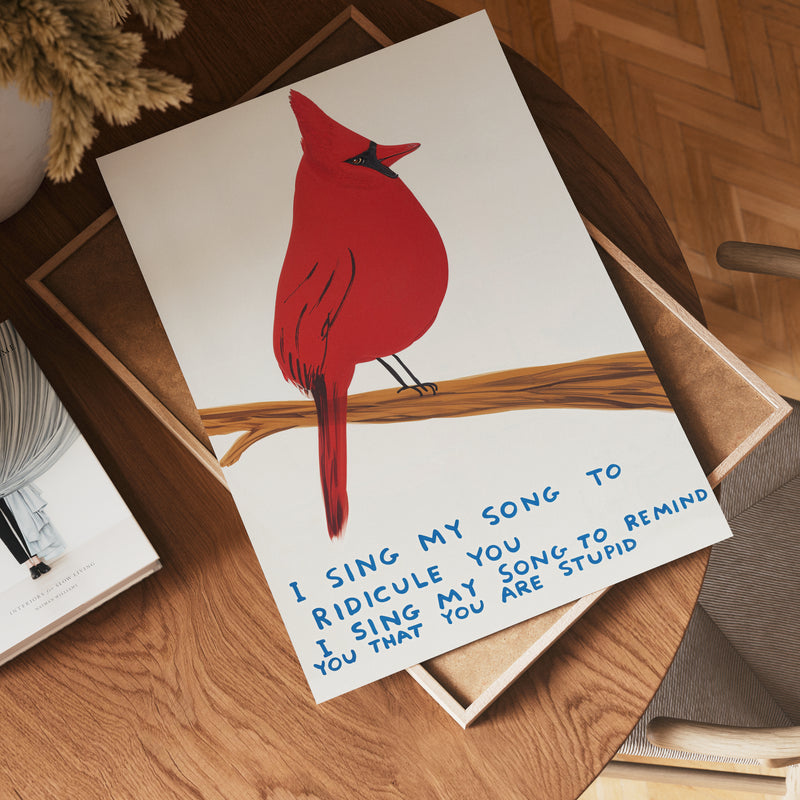 I SING MY SONG TO
RIDICULE YOU
I SING MY SONG TO REMIND
YOU THAT YOU ARE STUPID
INTERIORS for SLOW LIVING